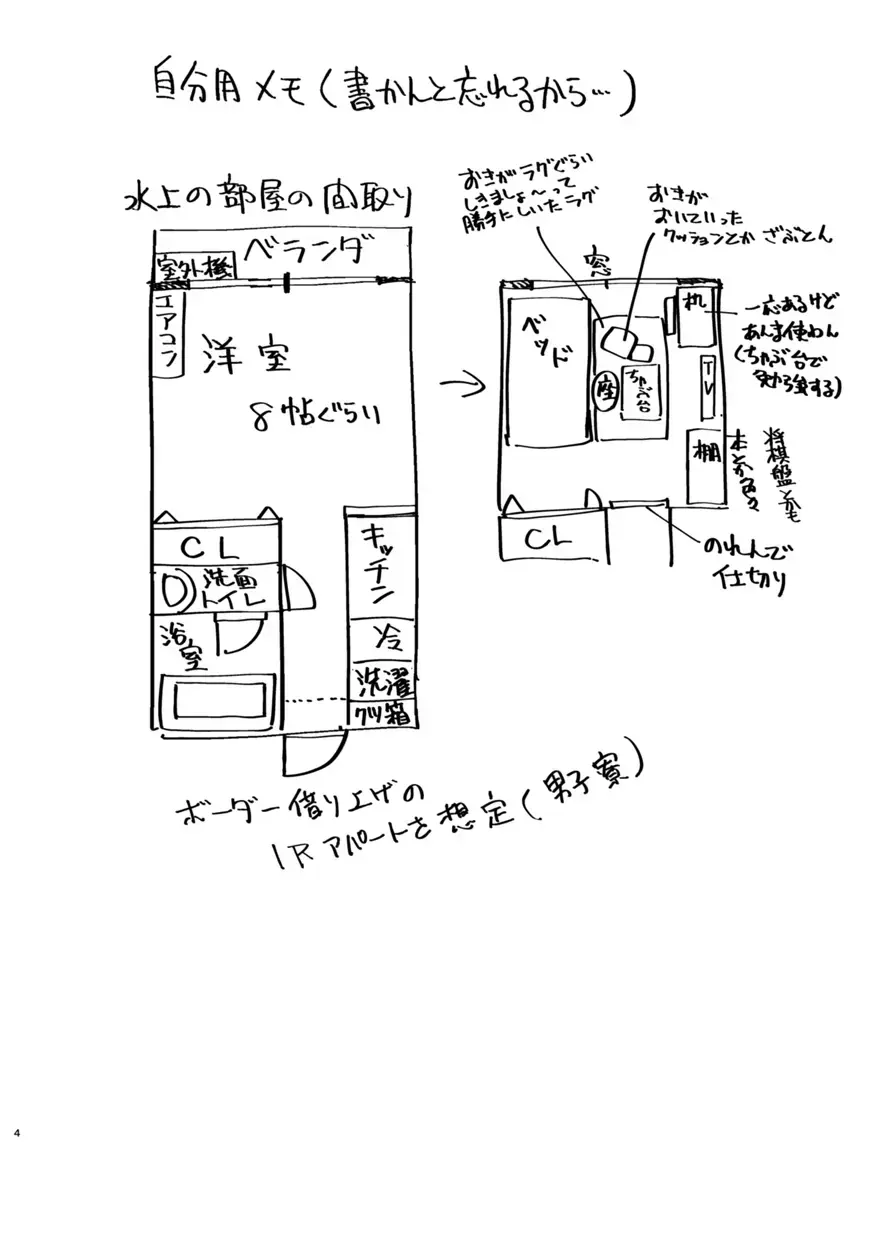 自分用メモ(書かんと忘れるから…)
水上の部屋の間取り
ベランダ
室外機
エアコン
洋室
8帖ぐらい
CL
洗面
トイレ
浴室
キッチン
冷
洗濯
クツ箱
おきがラグぐらい
しきましょ〜って
勝手にしいたラグ
おきが
おいていった
クッションとか ざぶとん
窓
ベッド
座
ちゃぶ台
机
TV
棚
一応あるけど
あんま使わん
(ちゃぶ台で
勉強する)
将棋盤とかも
本とか色々
CL
のれんで
仕切り
ボーダー借り上げの
1Rアパートを想定(男子寮)
4